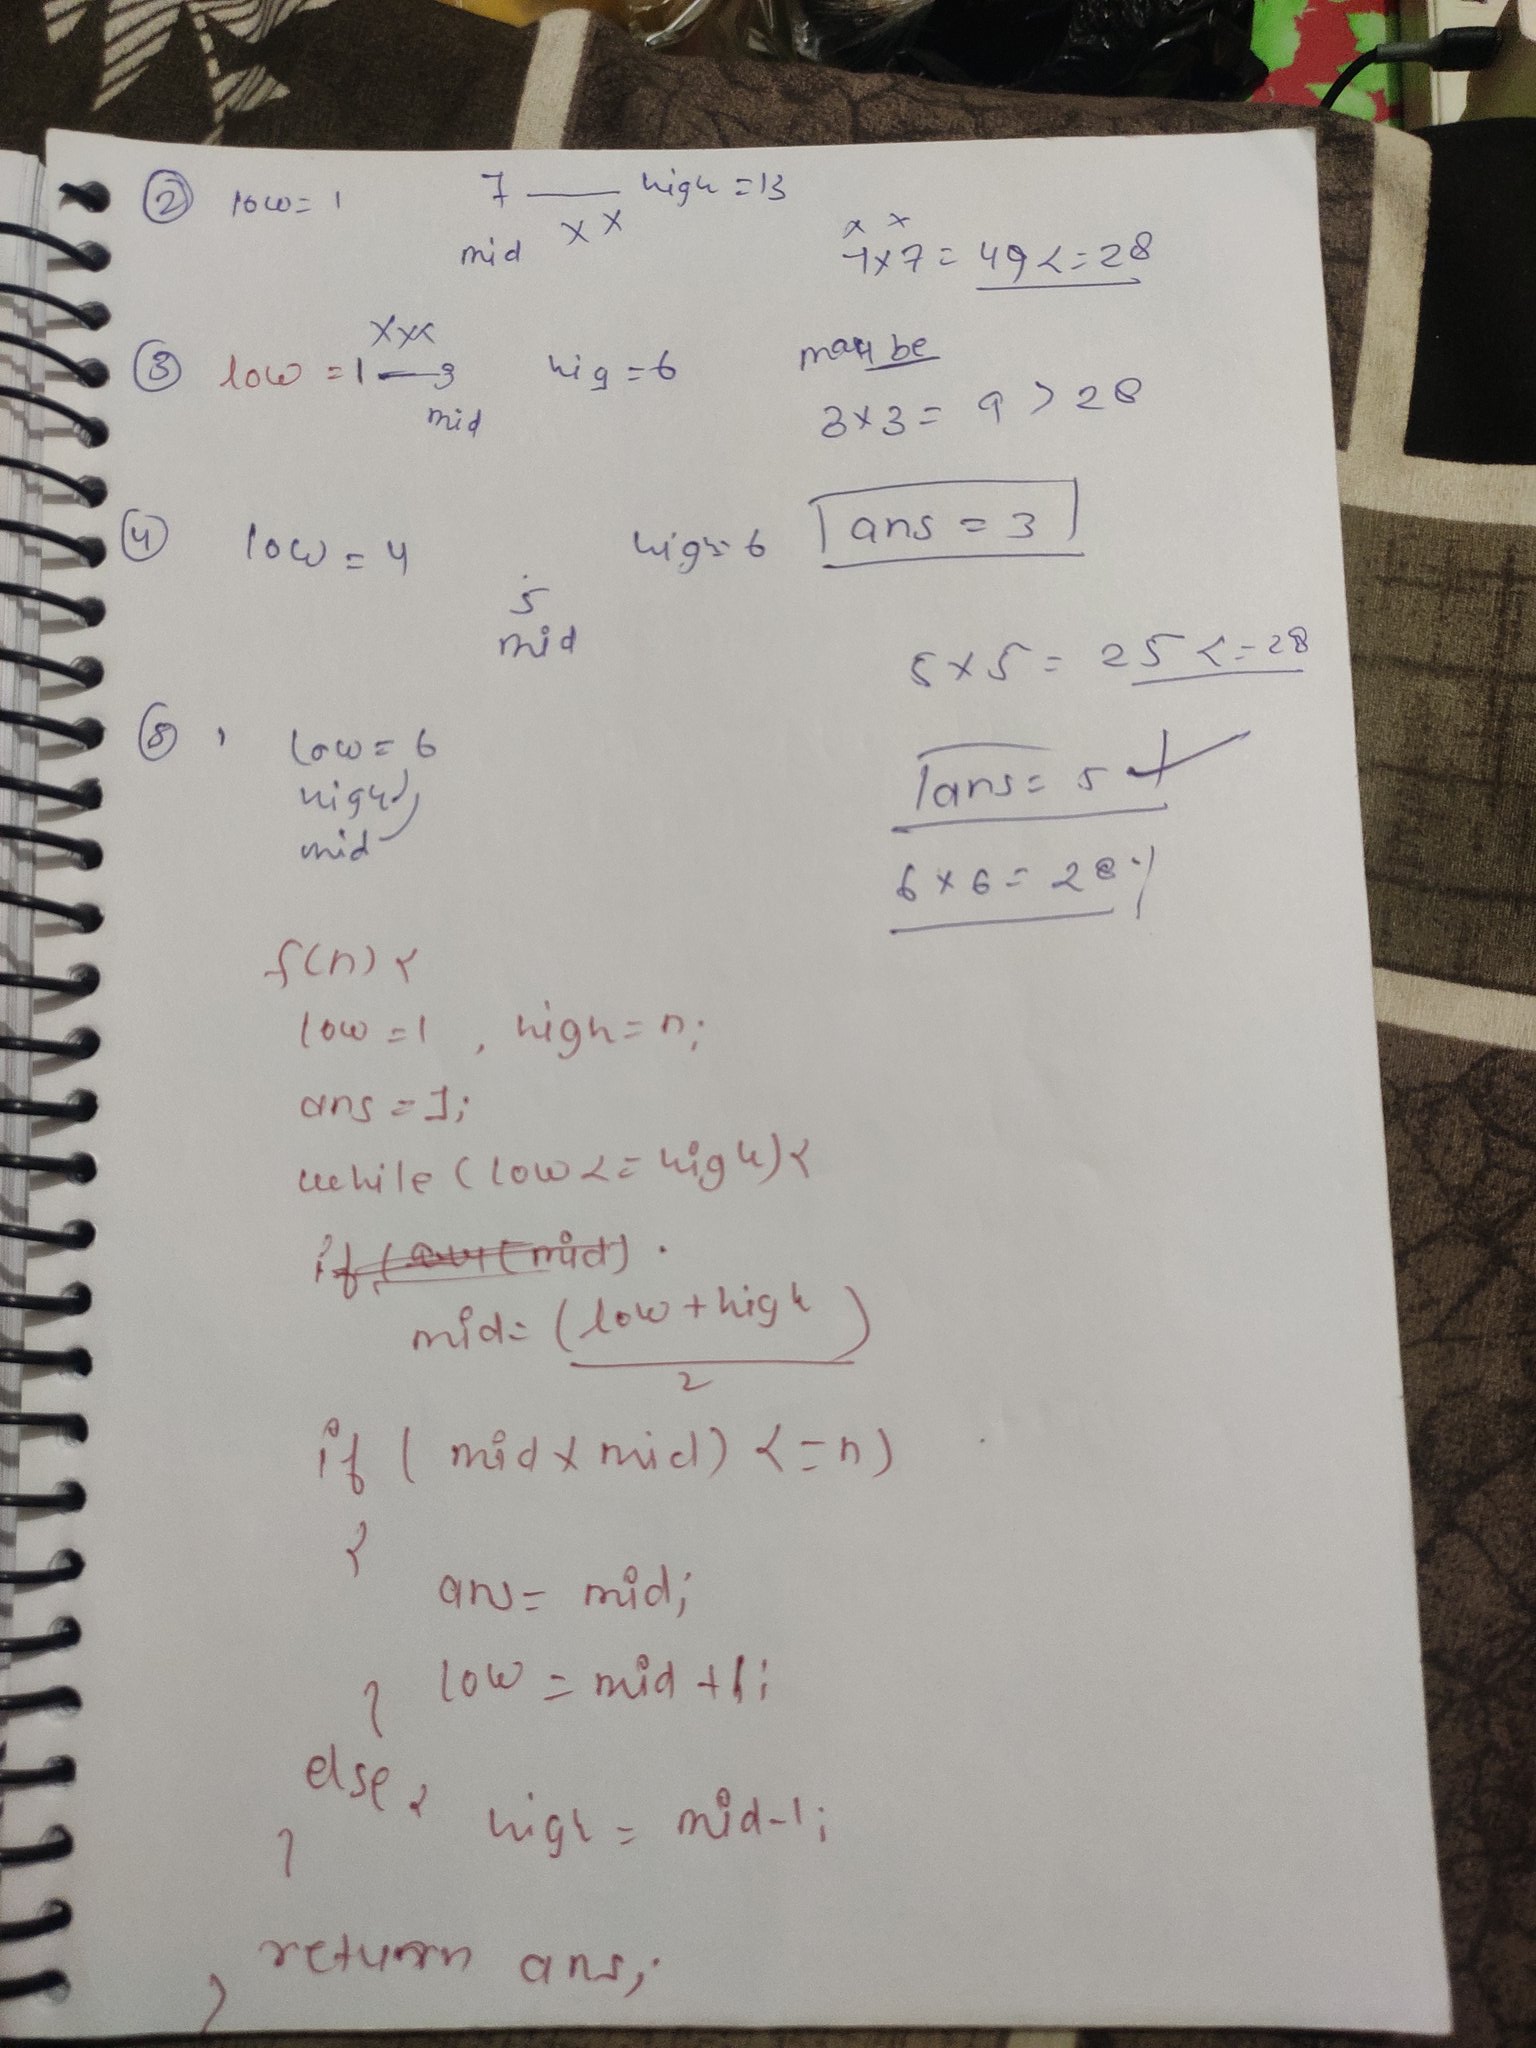 ② low = 1 7 —— high = 13
mid x x
x x
7x7 = 49 <= 28
xxx
③ low = 1 — 3 hig = 6
mid
may be
3x3 = 9 > 28
④ low = 4 high = 6
ans = 3
5
mid
5 x 5 = 25 <= 28
⑤ low = 6
high
mid
ans = 5 ✓
6 x 6 = 28
f(n) {
low = 1 , high = n;
ans = 1;
while (low <= high) {
mid = (low + high)
2
if ( mid x mid) <= n)
{
ans = mid;
low = mid + 1;
}
else {
high = mid - 1;
}
return ans;
}